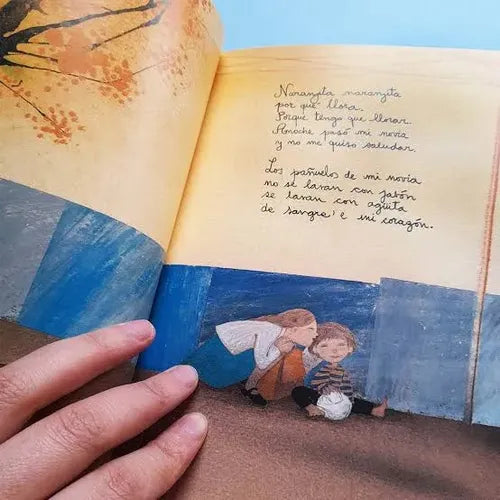 Naranjita naranjita
por qué llora.
Porque tengo que llorar.
Anoche pasó mi novia
y no me quiso saludar.
Los pañuelos de mi novia
no se lavan con jabón
se lavan con agüita
de sangre, e mi corazón.